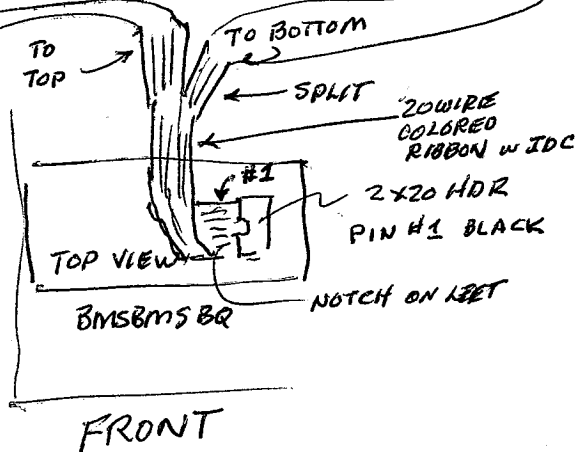 TO BOTTOM
TO
TOP
SPLIT
20 WIRE
COLORED
RIBBON W IDC
#1
2X20 HDR
PIN #1 BLACK
TOP VIEW
NOTCH ON LEFT
BMSBMSBQ
FRONT